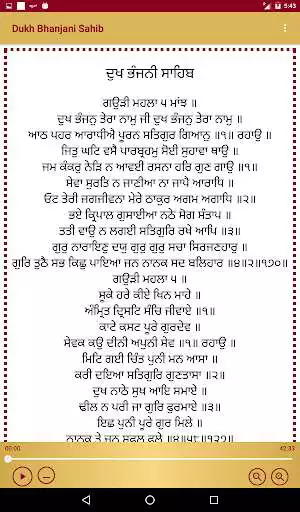 5:43
Dukh Bhanjani Sahib
ਦੁਖ ਭੰਜਨੀ ਸਾਹਿਬ
ਗਉੜੀ ਮਹਲਾ ੫ ਮਾਂਝ ॥
ਦੁਖ ਭੰਜਨੁ ਤੇਰਾ ਨਾਮੁ ਜੀ ਦੁਖ ਭੰਜਨੁ ਤੇਰਾ ਨਾਮੁ ॥
ਆਠ ਪਹਰ ਆਰਾਧੀਐ ਪੂਰਨ ਸਤਿਗੁਰ ਗਿਆਨੁ ॥੧॥ ਰਹਾਉ ॥
ਜਿਤੁ ਘਟਿ ਵਸੈ ਪਾਰਬ੍ਰਹਮੁ ਸੋਈ ਸੁਹਾਵਾ ਥਾਉ ॥
ਜਮ ਕੰਕਰੁ ਨੇੜਿ ਨ ਆਵਈ ਰਸਨਾ ਹਰਿ ਗੁਣ ਗਾਉ ॥੧॥
ਸੇਵਾ ਸੁਰਤਿ ਨ ਜਾਣੀਆ ਨਾ ਜਾਪੈ ਆਰਾਧਿ ॥
ਓਟ ਤੇਰੀ ਜਗਜੀਵਨਾ ਮੇਰੇ ਠਾਕੁਰ ਅਗਮ ਅਗਾਧਿ ॥੨॥
ਭਏ ਕ੍ਰਿਪਾਲ ਗੁਸਾਈਆ ਨਠੇ ਸੋਗ ਸੰਤਾਪ ॥
ਤਤੀ ਵਾਉ ਨ ਲਗਈ ਸਤਿਗੁਰਿ ਰਖੇ ਆਪਿ ॥੩॥
ਗੁਰੁ ਨਾਰਾਇਣੁ ਦਯੁ ਗੁਰੁ ਗੁਰੁ ਸਚਾ ਸਿਰਜਣਹਾਰੁ ॥
ਗੁਰਿ ਤੁਠੈ ਸਭ ਕਿਛੁ ਪਾਇਆ ਜਨ ਨਾਨਕ ਸਦ ਬਲਿਹਾਰ ॥੪॥੨॥੧੭੦॥
ਗਉੜੀ ਮਹਲਾ ੫ ॥
ਸੂਕੇ ਹਰੇ ਕੀਏ ਖਿਨ ਮਾਹੇ ॥
ਅੰਮ੍ਰਿਤ ਦ੍ਰਿਸਟਿ ਸੰਚਿ ਜੀਵਾਏ ॥੧॥
ਕਾਟੇ ਕਸਟ ਪੂਰੇ ਗੁਰਦੇਵ ॥
ਸੇਵਕ ਕਉ ਦੀਨੀ ਅਪੁਨੀ ਸੇਵ ॥੧॥ ਰਹਾਉ ॥
ਮਿਟਿ ਗਈ ਚਿੰਤ ਪੁਨੀ ਮਨ ਆਸਾ ॥
ਕਰੀ ਦਇਆ ਸਤਿਗੁਰਿ ਗੁਣਤਾਸਾ ॥੨॥
ਦੁਖ ਨਾਠੇ ਸੁਖ ਆਇ ਸਮਾਏ ॥
ਢੀਲ ਨ ਪਰੀ ਜਾ ਗੁਰਿ ਫੁਰਮਾਏ ॥੩॥
ਇਛ ਪੁਨੀ ਪੂਰੇ ਗੁਰ ਮਿਲੇ ॥
ਨਾਨਕ ਤੇ ਜਨ ਸੁਫਲ ਫਲੇ ॥੪॥੫੮॥੧੨੭॥
00:00 42:33